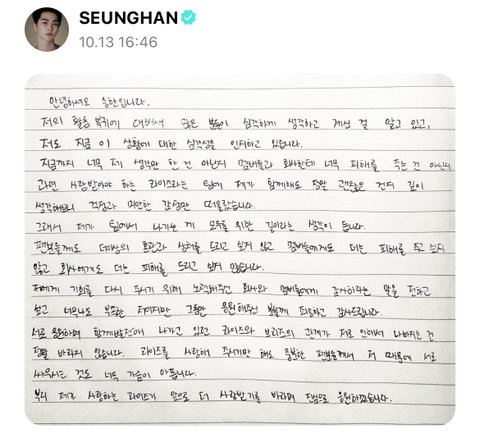 SEUNGHAN
10.13 16:46
안녕하세요 승한입니다.
저의 활동 복귀에 대해서 많은 분들이 심각하게 생각하고 계신 걸 알고 있고,
저도 지금 이 상황에 대한 심각성을 인지하고 있습니다.
지금까지 너무 제 생각만 한 건 아닌지 멤버들과 회사한테 너무 피해를 주는 건 아닌지
과연 사랑받아야 하는 라이즈라는 팀에 제가 함께해도 정말 괜찮은 건지 깊이
생각해보니 걱정과 미안한 감정만 떠올랐습니다.
그래서 제가 팀에서 나가는 게 모두를 위한 길이라는 생각이 듭니다.
팬분들께도 더이상의 혼란과 상처를 드리고 싶지 않고 멤버들에게도 더는 피해를 주고 싶지
않고 회사에게도 더는 피해를 드리고 싶지 않습니다.
저에게 기회를 다시 주시기 위해 노력해주신 회사와 멤버들에게 감사하다는 말을 전하고
싶고 너무나도 부족한 저이지만 그동안 응원해주신 분들께 죄송하고 감사드립니다.
서로 응원하며 함께 발전해 나가고 있던 라이즈와 브리즈의 관계가 저로 인해서 나빠지는 건
정말 바라지 않습니다. 라이즈를 사랑해 주시기만 해도 충분한 팬분들께서 저 때문에 서로
싸우시는 것도 너무 가슴이 아픕니다.
부디 제가 사랑하는 라이즈가 앞으로 더 사랑받기를 바라며 진심으로 응원하겠습니다.